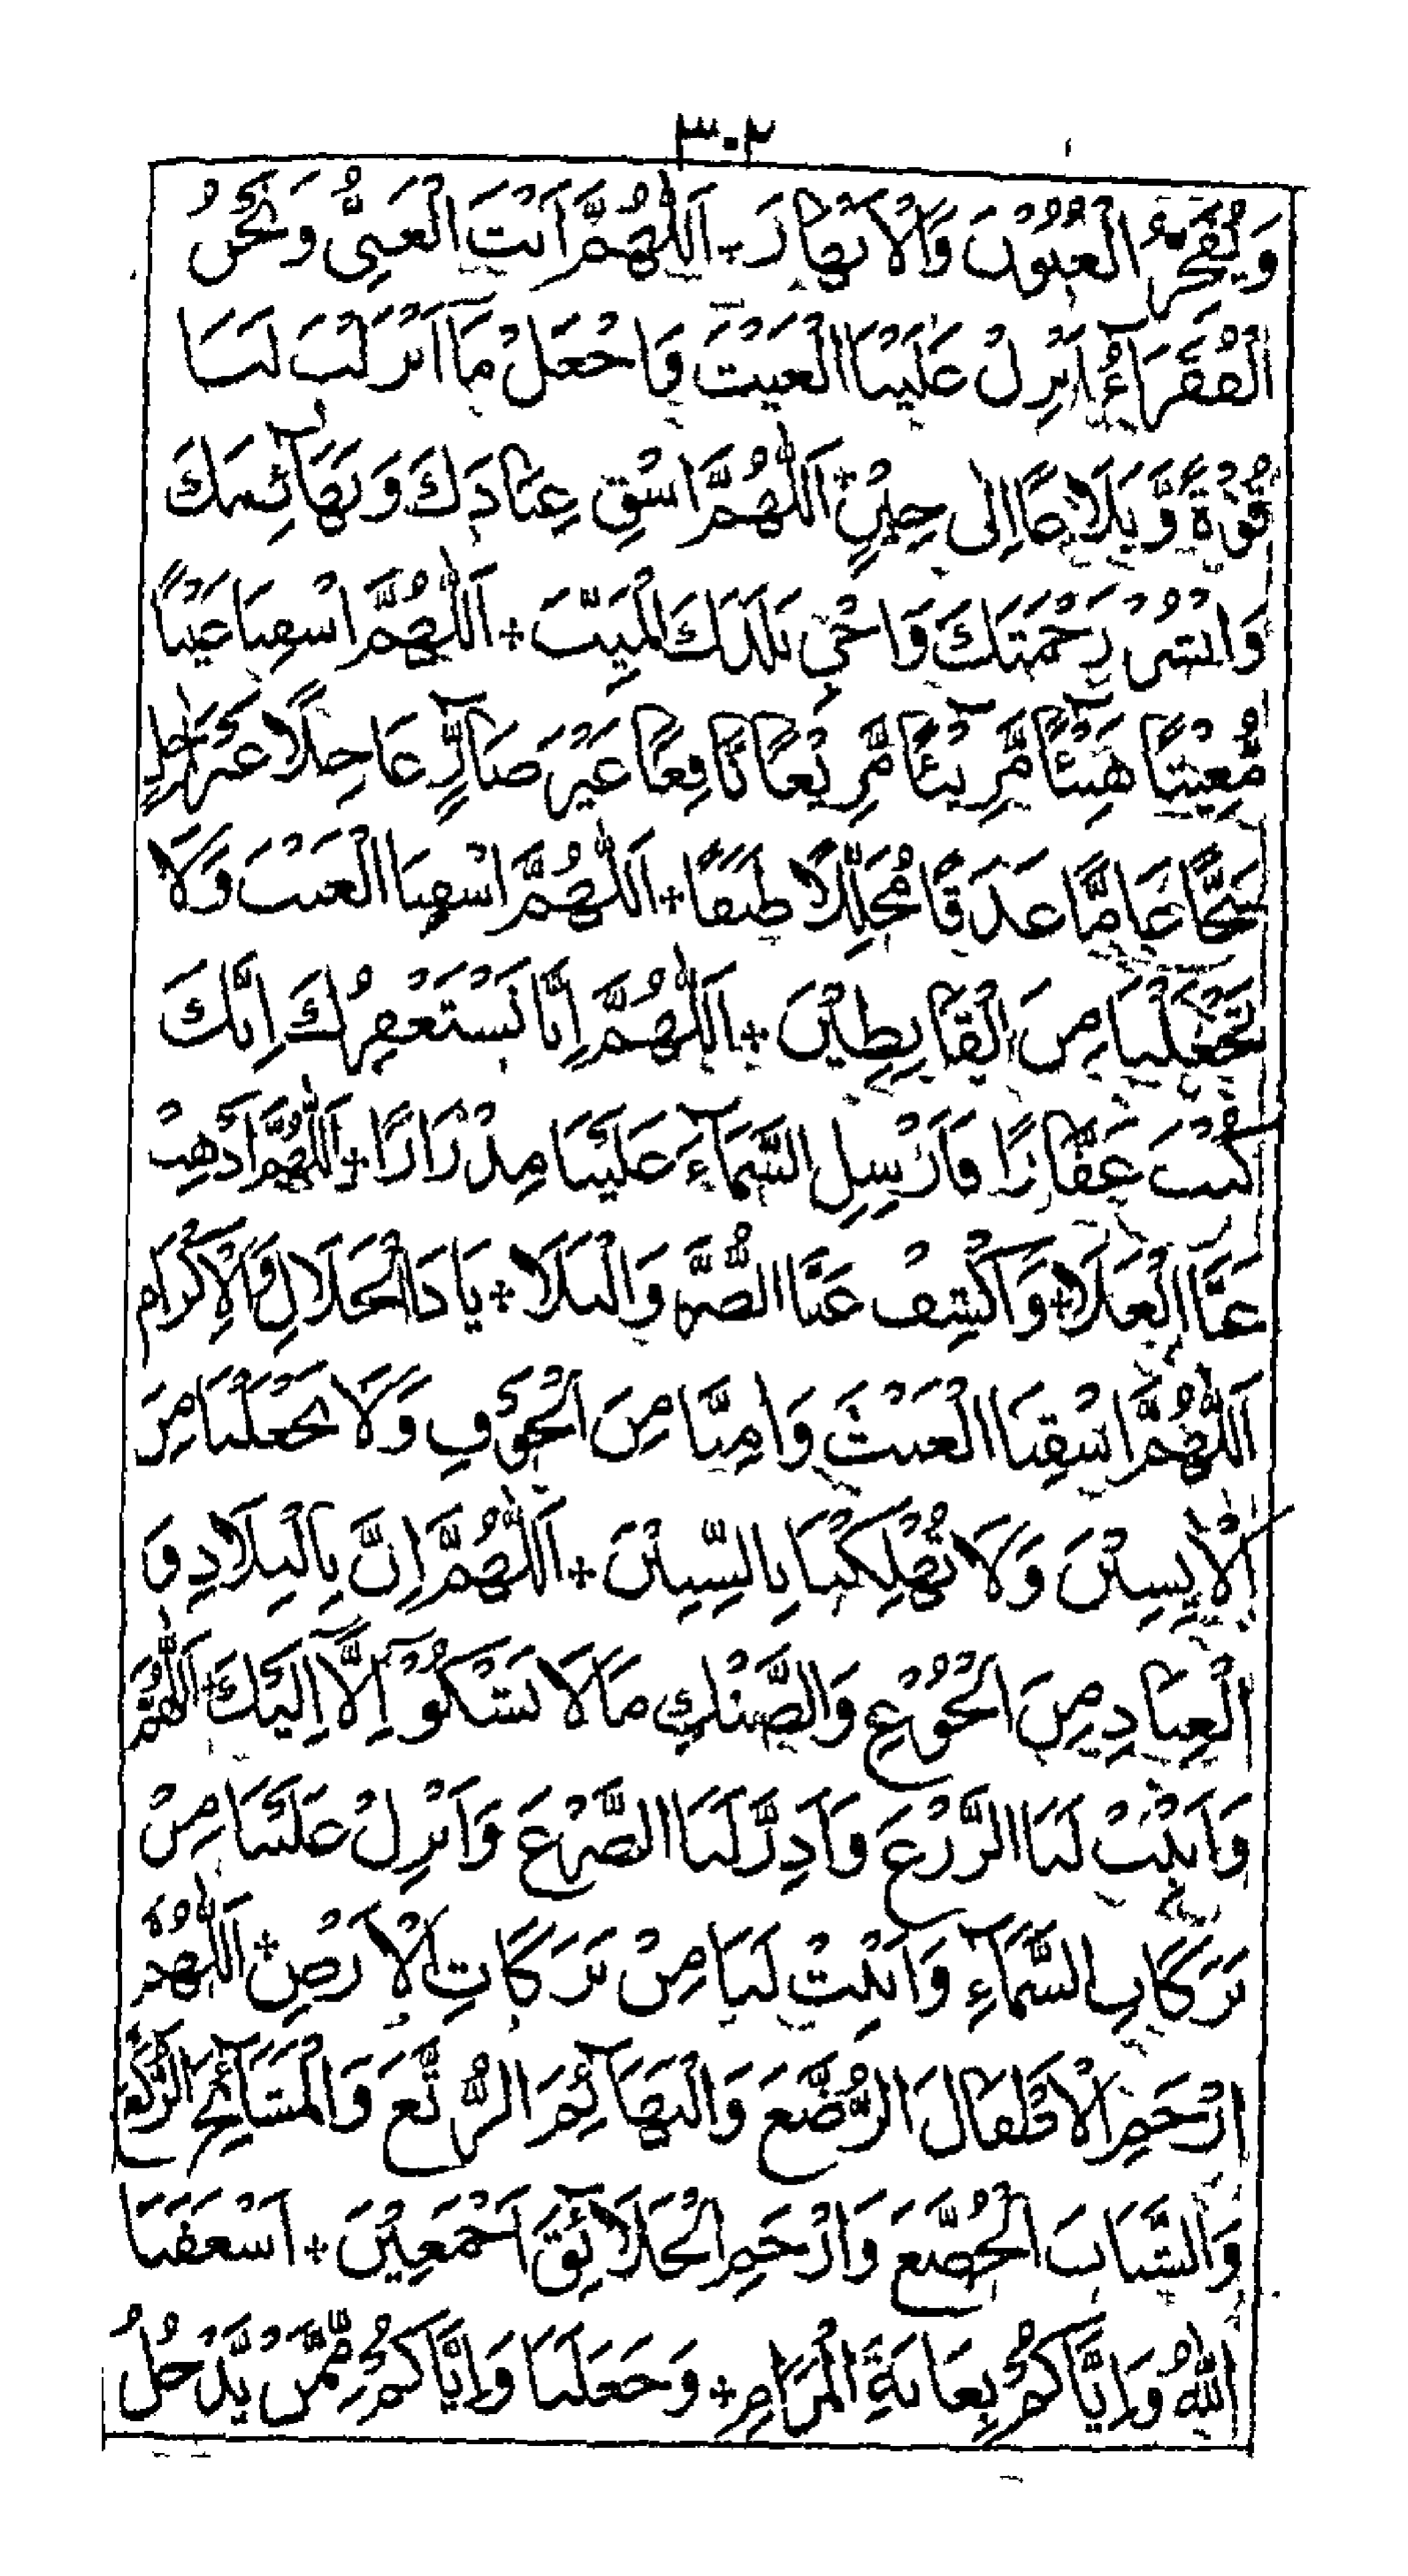 ٣٠٢
وَيُفَجِّرُ الْعُيُوْنَ وَالْاَنْهَارَ + اَللّٰهُمَّ اَنْتَ الْغَنِىُّ وَنَحْنُ
الْفُقَرَاءُ اَنْزِلْ عَلَيْنَا الْغَيْثَ وَاجْعَلْ مَا اَنْزَلْتَ لَنَا
قُوَّةً وَّبَلَاغًا اِلٰى حِيْنٍ + اَللّٰهُمَّ اسْقِ عِبَادَكَ وَبَهَآئِمَكَ
وَانْشُرْ رَحْمَتَكَ وَاَحْىِ بَلَدَكَ الْمَيِّتَ + اَللّٰهُمَّ اسْقِنَا غَيْثًا
مُّغِيْثًا هَنِيْئًا مَّرِيْئًا مَّرِيْعًا نَّافِعًا غَيْرَ ضَآرٍّ عَاجِلًا غَيْرَ اٰجِلٍ
سَحًّا عَامًّا غَدَقًا مُّجَلِّلًا طَبَقًا + اَللّٰهُمَّ اسْقِنَا الْغَيْثَ وَلَا
تَجْعَلْنَا مِنَ الْقَانِطِيْنَ + اَللّٰهُمَّ اِنَّا نَسْتَغْفِرُكَ اِنَّكَ
كُنْتَ غَفَّارًا فَاَرْسِلِ السَّمَآءَ عَلَيْنَا مِدْرَارًا + اَللّٰهُمَّ اَذْهِبْ
عَنَّا الْغَلَا + وَاكْشِفْ عَنَّا الضُّرَّ وَالْبَلَا + يَا ذَا الْجَلَالِ وَالْاِكْرَامِ
اَللّٰهُمَّ اسْقِنَا الْغَيْثَ وَاٰمِنَّا مِنَ الْخَوْفِ وَلَا تَجْعَلْنَا مِنَ
الْاٰيِسِيْنَ وَلَا تُهْلِكْنَا بِالسِّنِيْنَ + اَللّٰهُمَّ اِنَّ بِالْبِلَادِ وَ
الْعِبَادِ مِنَ الْجُوْعِ وَالضَّنْكِ مَا لَا نَشْكُوْ اِلَّآ اِلَيْكَ + اَللّٰهُمَّ
وَاَنْبِتْ لَنَا الزَّرْعَ وَاَدِرَّ لَنَا الضَّرْعَ وَاَنْزِلْ عَلَيْنَا مِنْ
بَرَكَاتِ السَّمَآءِ وَاَنْبِتْ لَنَا مِنْ بَرَكَاتِ الْاَرْضِ + اَللّٰهُمَّ
ارْحَمِ الْاَطْفَالَ الرُّضَّعَ وَالْبَهَآئِمَ الرُّتَّعَ وَالْمَشَآئِخَ الرُّكَّعَ
وَالشَّبَابَ الْخُضَّعَ وَارْحَمِ الْخَلَآئِقَ اَجْمَعِيْنَ + اَسْعَفَنَا
اللّٰهُ وَاِيَّاكُمْ بِغَايَةِ الْمَرَامِ + وَجَعَلَنَا وَاِيَّاكُمْ مِّمَّنْ يَّدْخُلُ